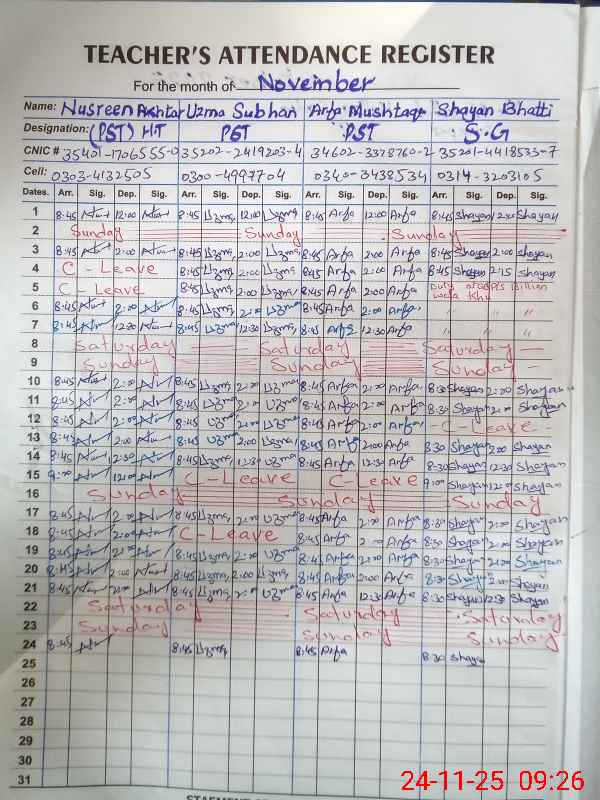 TEACHER'S ATTENDANCE REGISTER
For the month of November
Name: Nusreen Akhtar Uzma Subhan Arfa Mushtaq Shayan Bhatti
Designation: (PST) HT PST PST S.G
CNIC # 35401-1706555-0 35202-2419203-4 34602-3378760-2 35201-4418533-7
Cell: 0303-4132505 0300-4997704 0340-3438534 0314-3203105
Dates. Arr. Sig. Dep. Sig. Arr. Sig. Dep. Sig. Arr. Sig. Dep. Sig. Arr. Sig. Dep. Sig.
1 8:45 12:00 8:45 Uzma 12:00 Uzma 8:45 Arfa 12:00 Arfa 8:45 Shayan Shayan
2 Sunday Sunday Sunday
3 8:45 2:00 8:45 Uzma 2:00 Uzma 8:45 Arfa 2:00 Arfa 8:45 Shayan 2:00 Shayan
4 C-Leave 8:45 Uzma 2:00 Uzma 8:45 Arfa 2:00 Arfa 8:45 Shayan 2:15 Shayan
5 C-Leave 8:45 Uzma 2:00 Uzma 8:45 Arfa 2:00 Arfa Duty
6 8:45 2:00 8:45 Uzma 2:00 Uzma 8:45 Arfa 2:00 Arfa " " "
7 8:45 12:30 8:45 Uzma 12:30 Uzma 8:45 Arfa 12:30 Arfa " " "
8 Saturday Saturday Saturday
9 Sunday Sunday Sunday
10 8:45 2:00 8:45 Uzma 2:00 Uzma 8:45 Arfa 2:00 Arfa 8:30 Shayan 2:00 Shayan
11 8:45 2:00 8:45 Uzma 2:00 Uzma 8:45 Arfa 2:00 Arfa 8:30 Shayan 2:00 Shayan
12 8:45 2:00 8:45 Uzma 2:00 Uzma 8:45 Arfa 2:00 Arfa C-Leave
13 8:45 2:00 8:45 Uzma 2:00 Uzma 8:45 Arfa 2:00 Arfa 8:30 Shayan 2:00 Shayan
14 8:45 12:30 8:45 Uzma 12:30 Uzma 8:45 Arfa 12:30 Arfa 8:30 Shayan 12:30 Shayan
15 9:00 12:00 C-Leave C-Leave 9:00 Shayan 12:00 Shayan
16 Sunday Sunday Sunday
17 8:45 2:00 8:45 Uzma 2:00 Uzma 8:45 Arfa 2:00 Arfa 8:30 Shayan 2:00 Shayan
18 8:45 2:00 C-Leave 8:45 Arfa 2:00 Arfa 8:30 Shayan 2:00 Shayan
19 8:45 2:00 8:45 Uzma 2:00 Uzma 8:45 Arfa 2:00 Arfa 8:30 Shayan 2:00 Shayan
20 8:45 2:00 8:45 Uzma 2:00 Uzma 8:45 Arfa 2:00 Arfa 8:30 Shayan 2:00 Shayan
21 8:45 8:45 Uzma 2:00 Uzma 8:45 Arfa 12:30 Arfa 8:30 Shayan 12:30 Shayan
22 Saturday Saturday Saturday
23 Sunday Sunday Sunday
24 8:45 8:45 Uzma 8:45 Arfa 8:30 Shayan
25
26
27
28
29
30
31
24-11-25 09:26